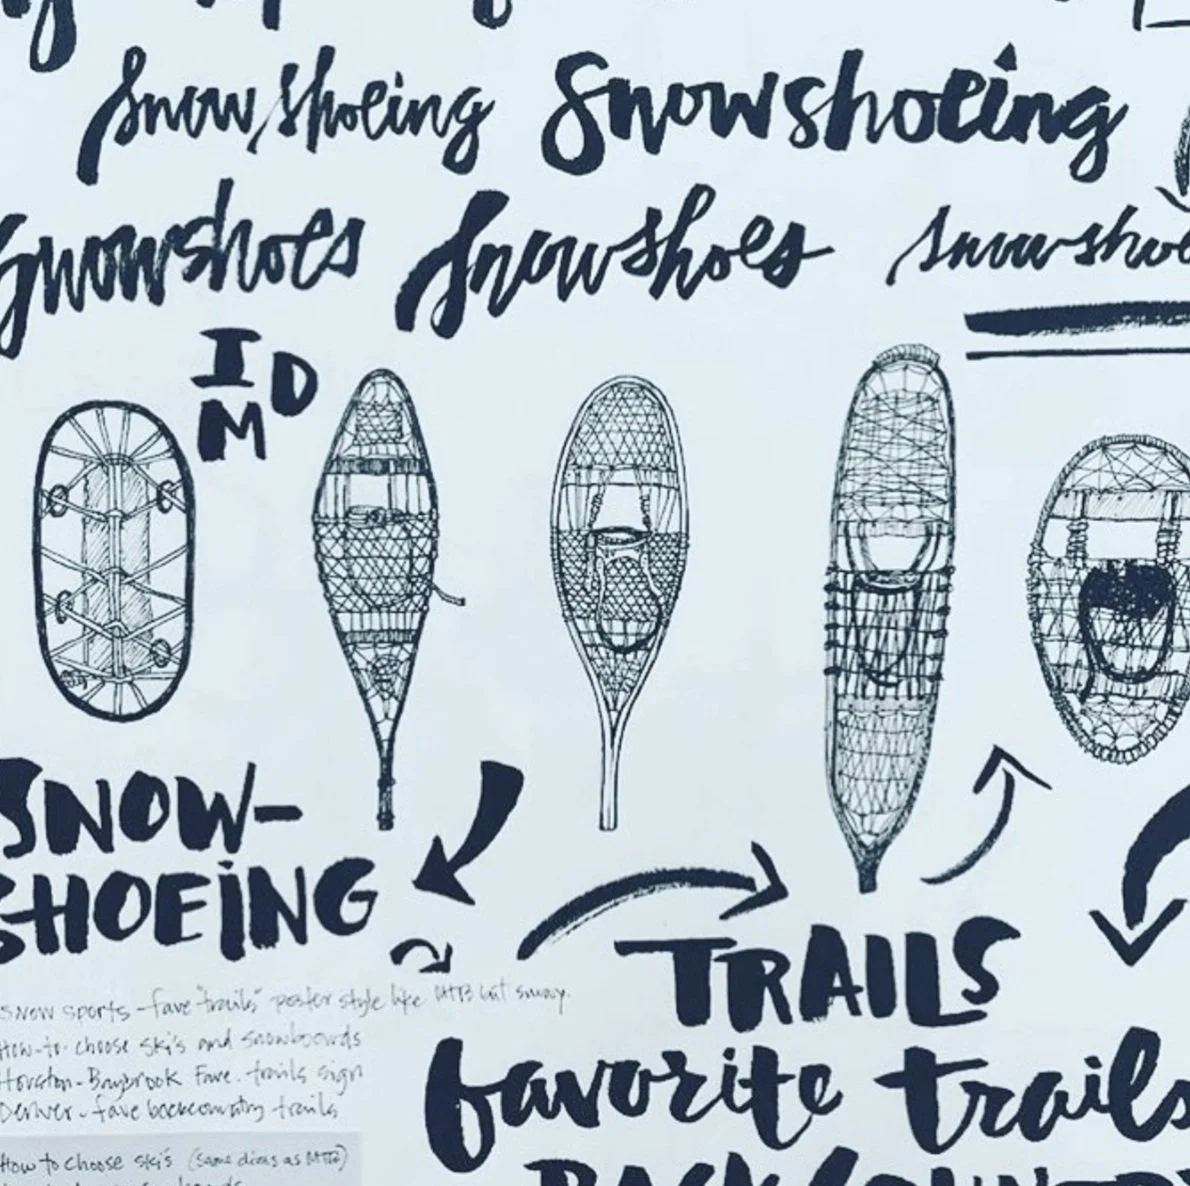 Snowshoeing Snowshoeing
Snowshoes Snowshoes Snowshoe
I D
M
SNOW-
SHOEING
TRAILS
snow sports - fave "trails" poster style like MTB but snowy.
How-to-choose skis and snowboards
Houston - Baybrook Fave. trails sign
Denver - fave backcountry trails
favorite trails
How to choose skis (same dims as MTB)
BACKCOUNTRY